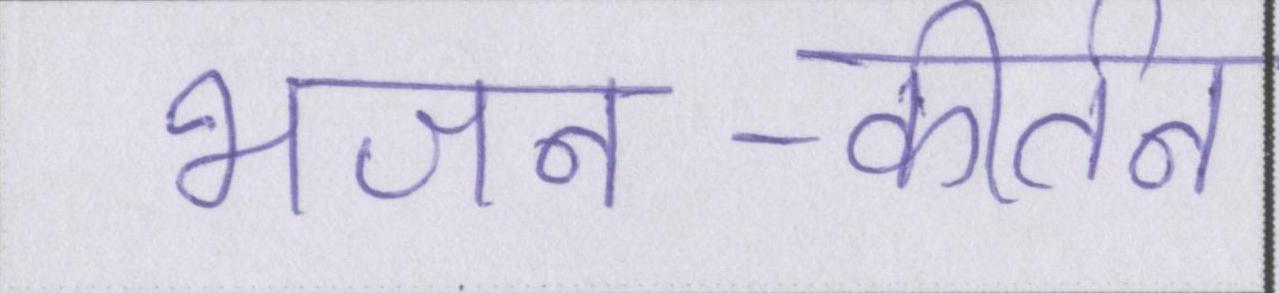 भजन-कीर्तन